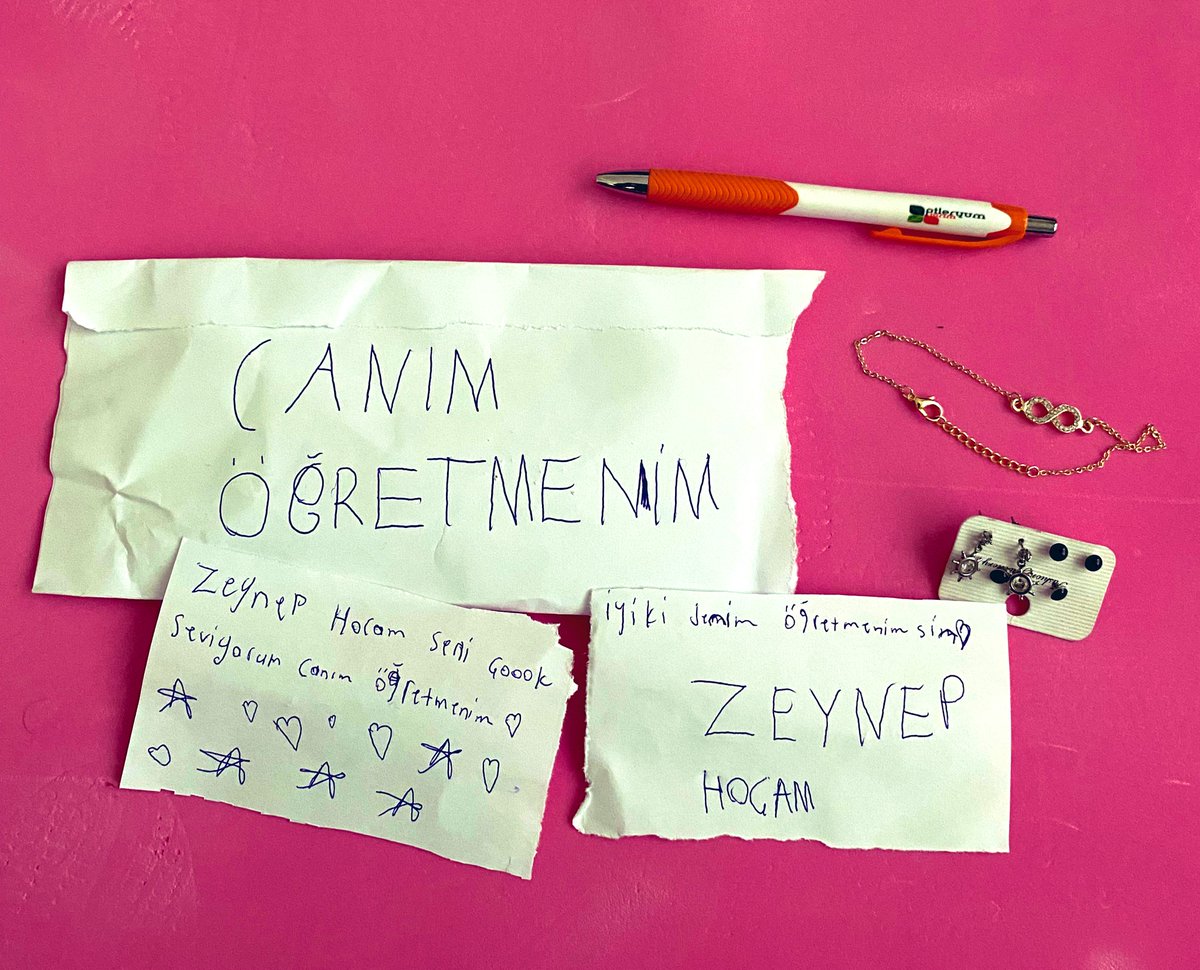 CANIM
ÖĞRETMENİM
Zeynep Hocam seni çoook
Seviyorum canım öğretmenim
iyiki benim öğretmenimsin
ZEYNEP
HOCAM